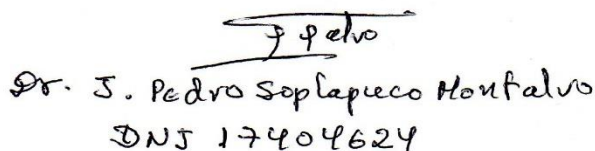 Dr. J. Pedro Soplapuco Montalvo
DNI 17404624